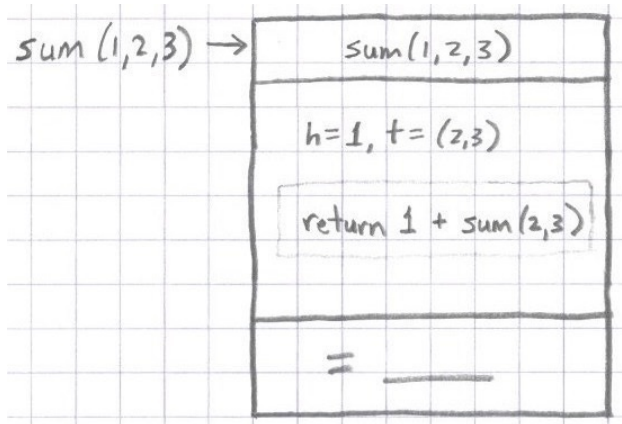 sum (1,2,3) →
sum(1,2,3)
h=1, t= (2,3)
return 1 + sum(2,3)
= ____